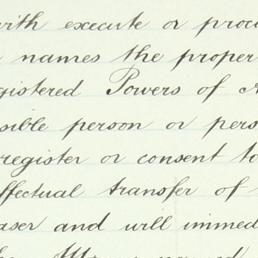 with execute or proc
names the proper
gistered Powers of A
sible person or pers
register or consent to
ffectual transfer of
aser and will immed